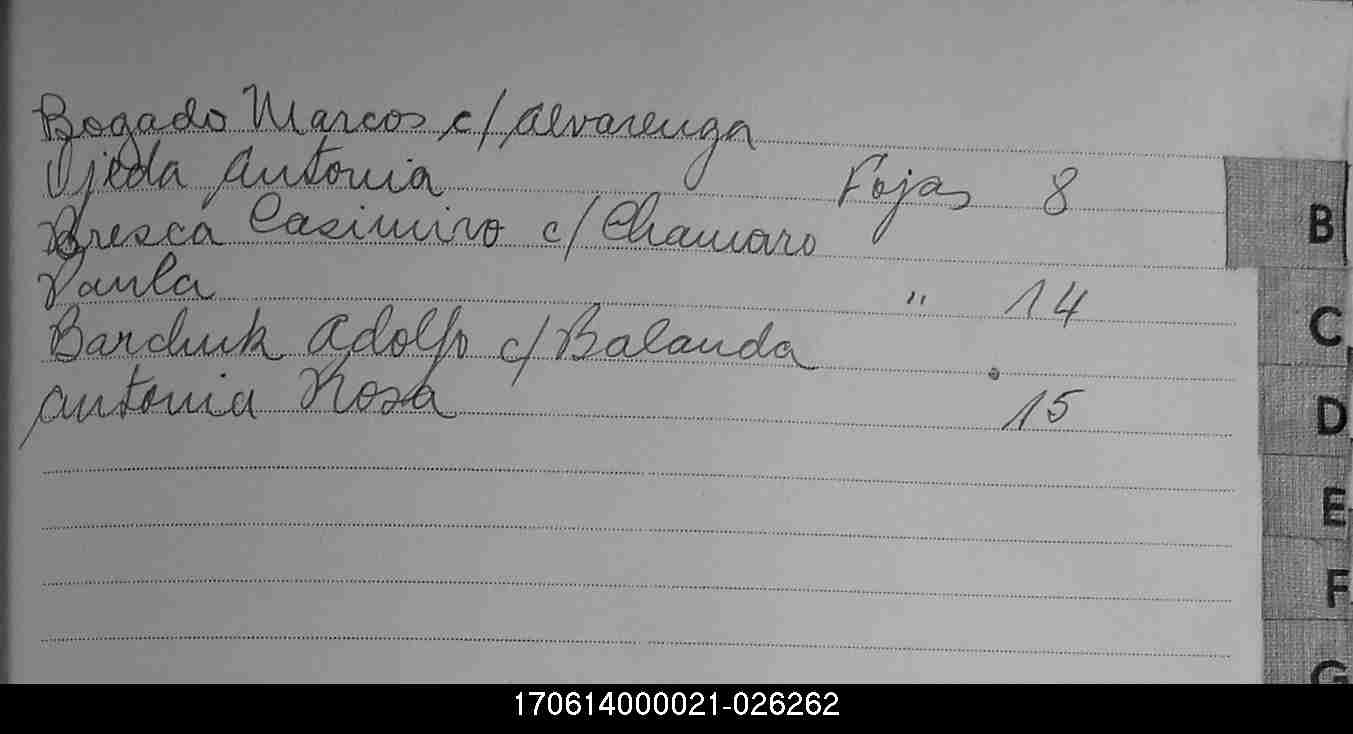 Bogado Marcos c/ Alvarenga
Ojeda Antonia Fojas 8
B
Bresca Casimiro c/ Chamaro
Paula " 14
C
Barchuk Adolfo c/ Balanda
Antonia Rosa 15
D
E
F
G
170614000021-026262